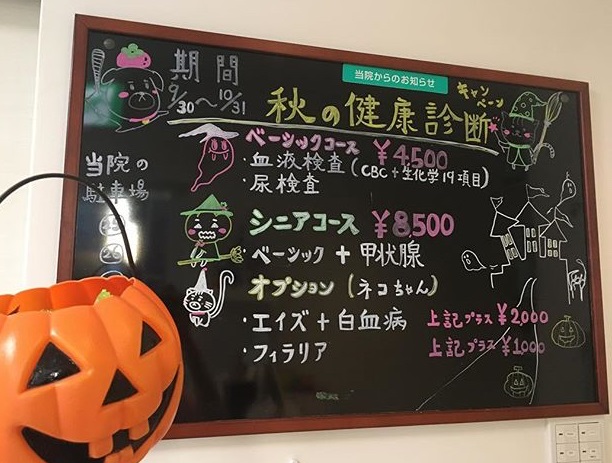 当院からのお知らせ
期間
9/30〜10/31
秋の健康診断
キャンペーン
ベーシックコース ¥4,500
・血液検査(CBC+生化学19項目)
・尿検査
当院の
駐車場
26
シニアコース ¥8,500
・ベーシック+甲状腺
オプション(ネコちゃん)
・エイズ+白血病 上記プラス¥2,000
・フィラリア 上記プラス¥1,000